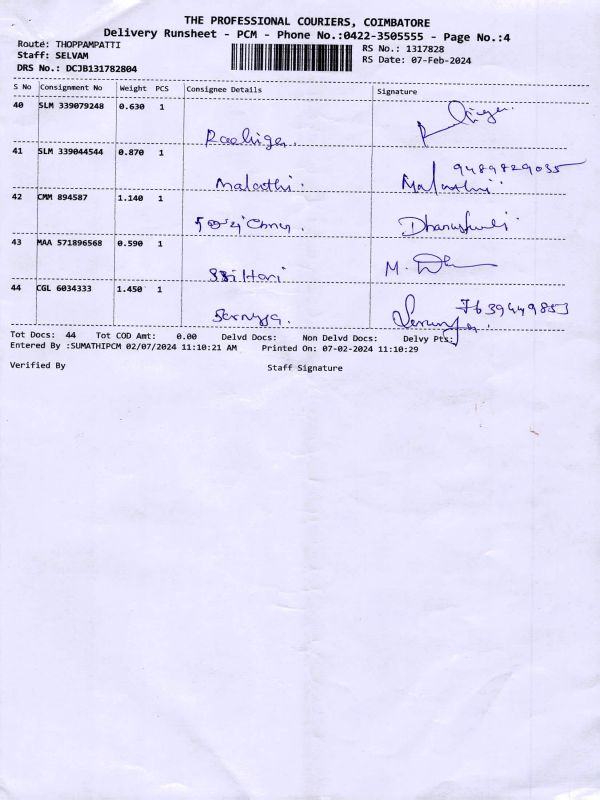 THE PROFESSIONAL COURIERS, COIMBATORE
Delivery Runsheet - PCM - Phone No.:0422-3505555 - Page No.:4
Route: THOPPAMPATTI RS No.: 1317828
Staff: SELVAM RS Date: 07-Feb-2024
DRS No.: DCJB131782804
S No Consignment No Weight PCS Consignee Details Signature
40 SLM 339079248 0.630 1
41 SLM 339044544 0.870 1 9489829035
Malathi. Malathi.
42 CMM 894587 1.140 1
43 MAA 571896568 0.590 1
Hari M.
44 CGL 6034333 1.450 1 7639449853
Tot Docs: 44 Tot COD Amt: 0.00 Delvd Docs: Non Delvd Docs: Delvy Pts:
Entered By :SUMATHIPCM 02/07/2024 11:10:21 AM Printed On: 07-02-2024 11:10:29
Verified By Staff Signature